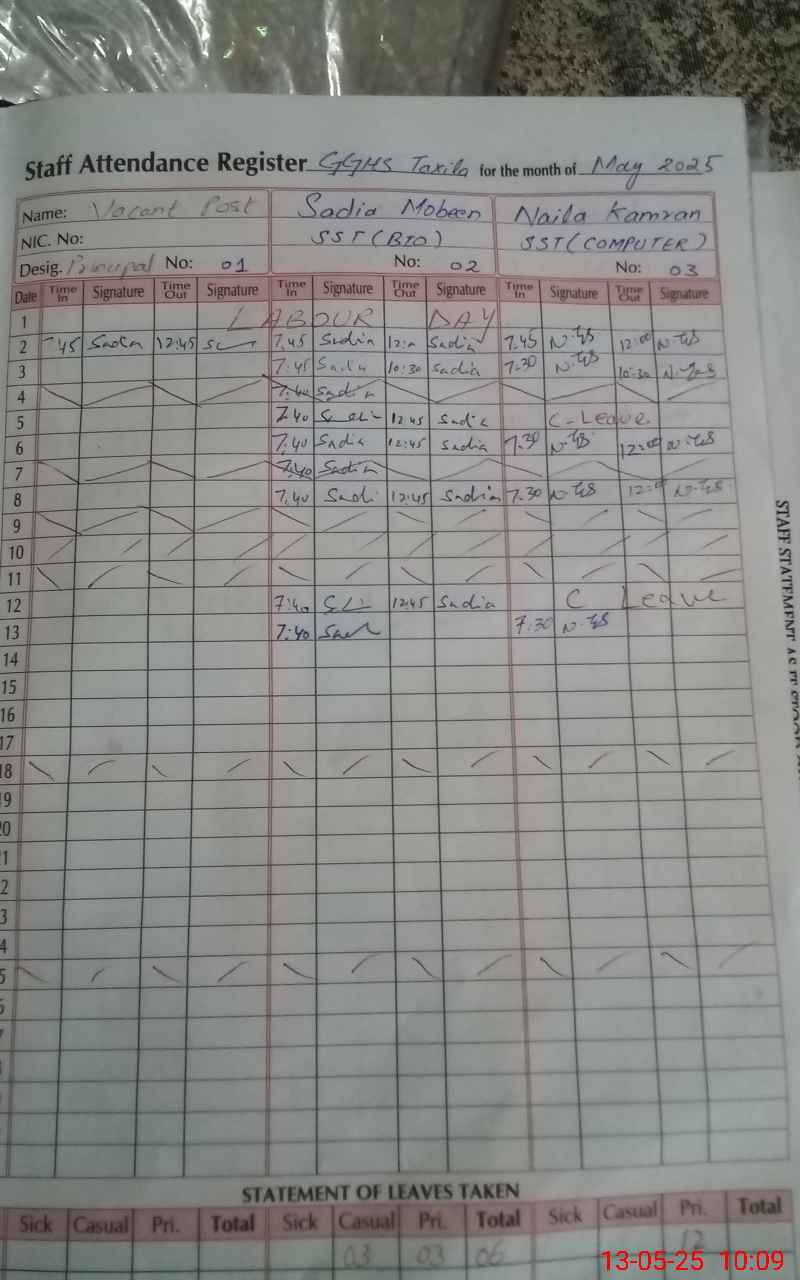 Staff Attendance Register GGHS Taxila for the month of May 2025
Name: Vacant Post Sadia Mobeen Naila Kamran
NIC. No: SST (BIO) SST (COMPUTER)
Desig. Principal No: 01 No: 02 No: 03
Date Time In Signature Time Out Signature Time In Signature Time Out Signature Time In Signature Time Out Signature
1 LABOUR DAY
2 7:45 Sadia 12:45 7:45 Sadia Sadia 7:45 12:00
3 7:45 Sadia 10:30 Sadia 7:30 10:30
4 7:40 Sadia
5 7:40 12:45 Sadia C-Leave
6 7:40 Sadia 12:45 Sadia 7:30 12:00
7 7:40 Sadia
8 7:40 Sadi 12:45 Sadia 7:30 12:00
9
10
11
12 7:40 12:45 Sadia C Leave
13 7:40 7:30
14
15
16
17
18
19
20
1
2
3
4
5
STAFF STATEMENT AS IT STOOD
STATEMENT OF LEAVES TAKEN
Sick Casual Pri. Total Sick Casual Pri. Total Sick Casual Pri. Total
03 03 06 12
13-05-25 10:09